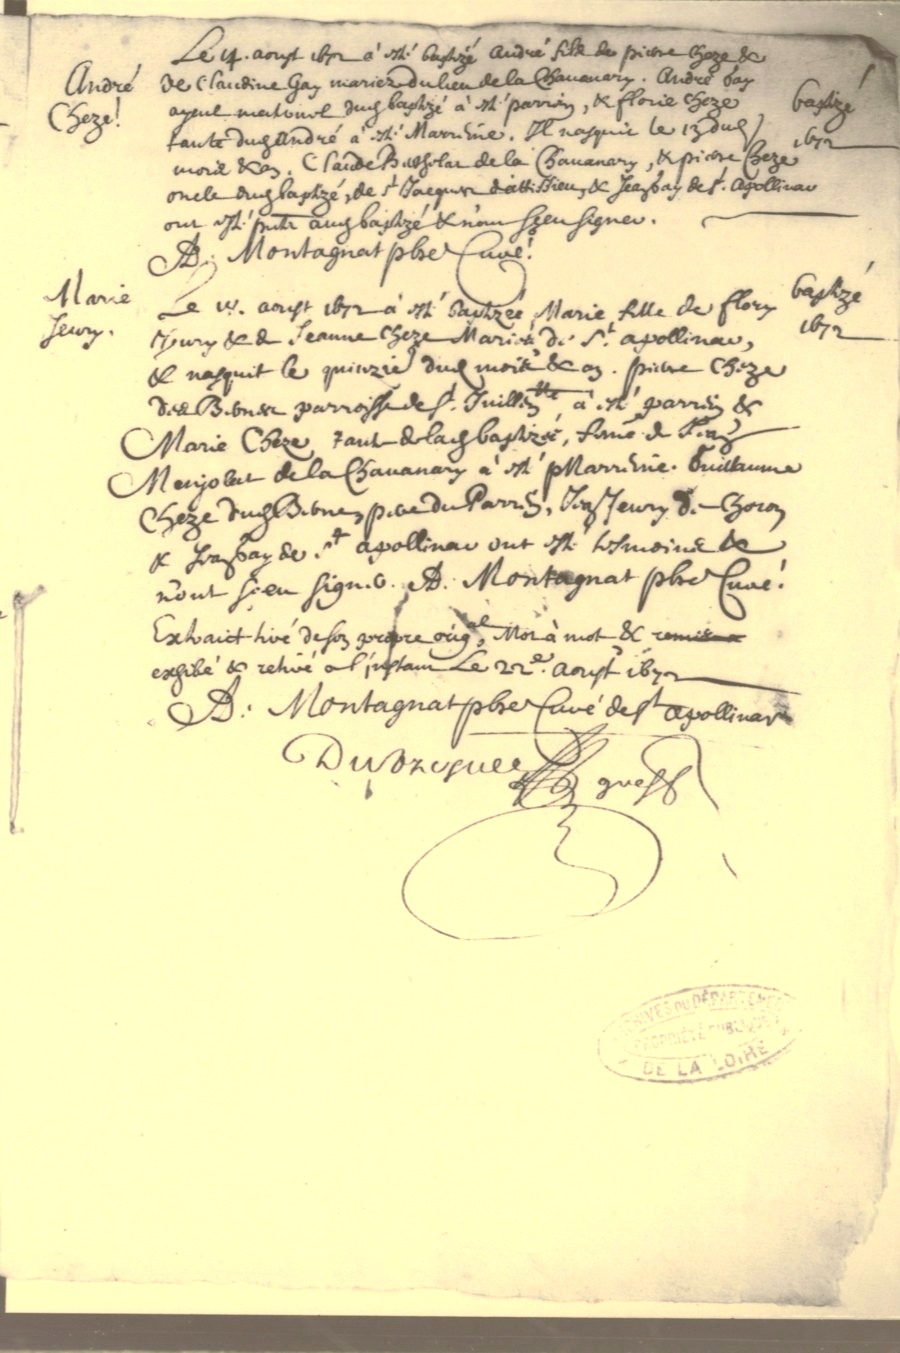 André
Cheze!
Le 14. aoust 1672 à esté baptzé André fils de pierre cheze &
de Claudine Gay mariez du lieu de la Chavanary. André Gay
ayeul maternel dud baptzé à esté parrin, & florie cheze
tante dud André à esté Marrine. Il nasquit le 13 dud
mois & an. Claude de la Chavanary, & pierre Cheze
oncle dud baptzé, de st Jacques d'atticieu, & Jean Gay de st. apollinar
ont esté pnts aud baptzé & n'ont sceu signer.
A. Montagnat pbre Curé!
baptzé
1672
Marie
Jeury.
Le aoust 1672 à esté baptzée Marie fille de flory
Jeury & de Jeanne cheze Mariés de St. apollinar,
& nasquit le quinzie dud mois & an. pierre cheze
parroisse de st. Juillin à esté parrin &
Marie Cheze tante de lad baptzée, feme de Jean
Merjolat de la Chavanary à esté Marrine. Guillaume
Cheze dud pere du Parrin, Jean Jeury de
& Jean Gay de st apollinar ont esté tesmoins &
n'ont sceu signer. A. Montagnat pbre Curé!
baptzée
1672
Extraict tiré de son propre origal, Mot à mot &
exhibé & retiré a l'instant Le 22e. Aoust 1672
A. Montagnat pbre Curé de st apollinar
ARCHIVES DU DÉPARTEMENT
PROPRIÉTÉ PUBLIQUE
DE LA LOIRE